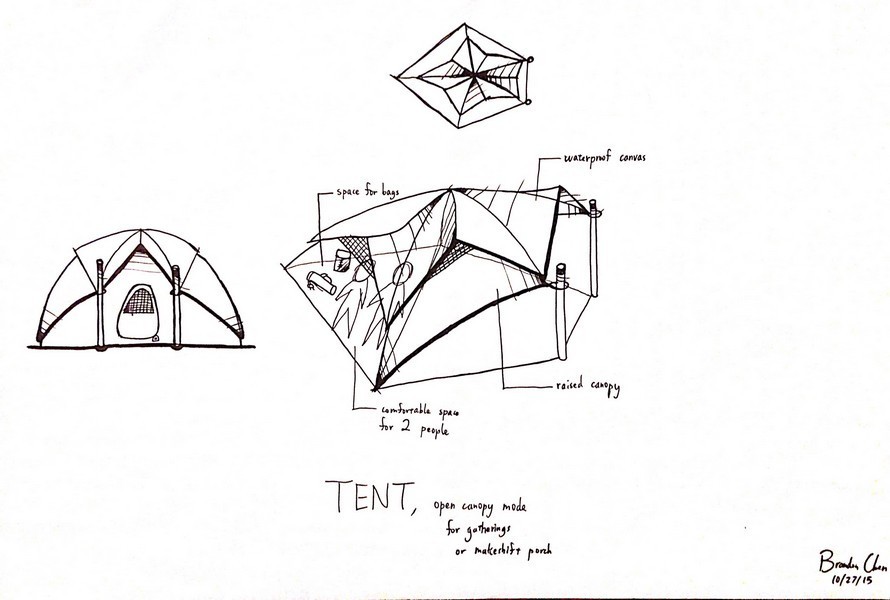 waterproof canvas
space for bags
raised canopy
comfortable space
for 2 people
TENT, open canopy mode
for gatherings
or makeshift porch
10/27/15